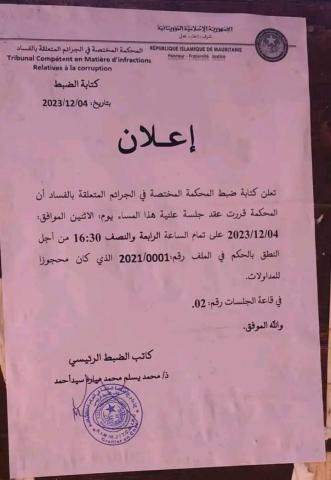 الجمهورية الإسلامية الموريتانية
شرف - إخاء - عدل
RÉPUBLIQUE ISLAMIQUE DE MAURITANIE
Honneur - Fraternité - Justice
المحكمة المختصة في الجرائم المتعلقة بالفساد
Tribunal Compétent en Matière d'infractions
Relatives à la corruption
كتابة الضبط
بتاريخ: 2023/12/04
إعـلان
تعلن كتابة ضبط المحكمة المختصة في الجرائم المتعلقة بالفساد أن
المحكمة قررت عقد جلسة علنية هذا المساء يوم: الاثنين الموافق:
2023/12/04 على تمام الساعة الرابعة والنصف 16:30 من أجل
النطق بالحكم في الملف رقم: 2021/0001 الذي كان محجوزا
للمداولات.
في قاعة الجلسات رقم: 02.
والله الموفق.
كاتب الضبط الرئيسي
ذ/ محمد يسلم محمد مبارة سيدأحمد